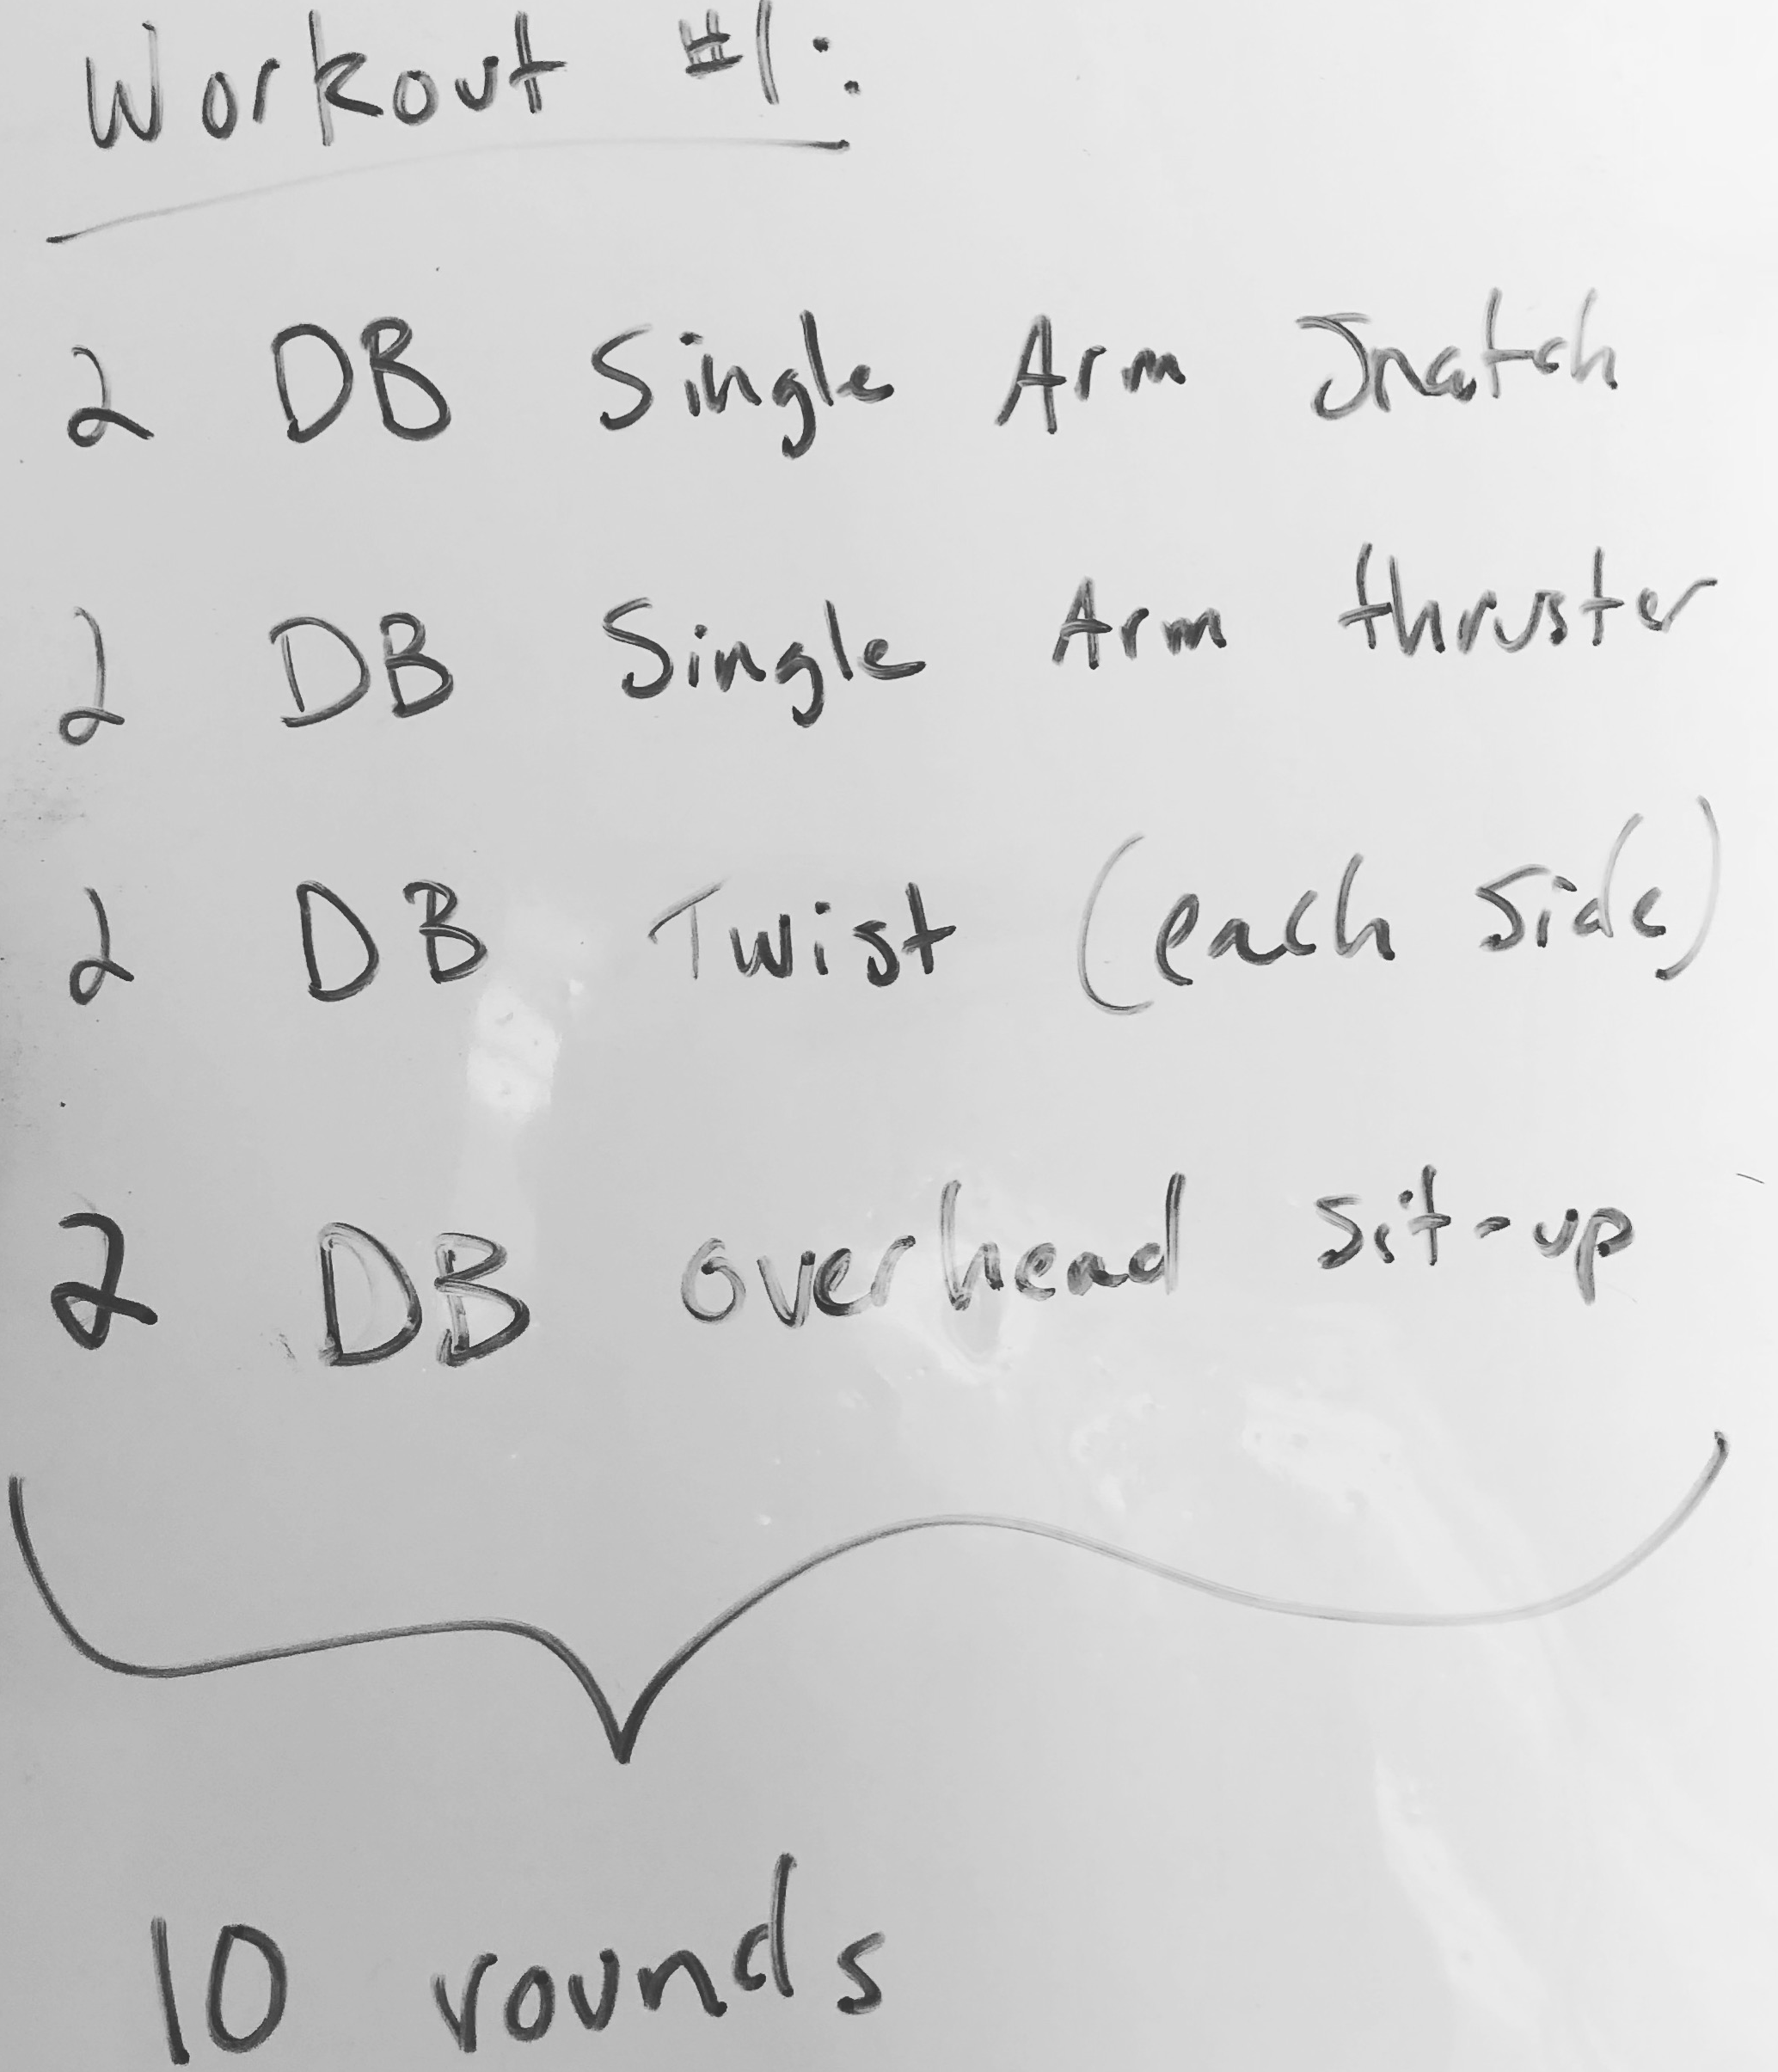 Workout #1:
2 DB Single Arm Snatch
2 DB Single Arm thruster
2 DB Twist (each side)
2 DB overhead sit-up
10 rounds